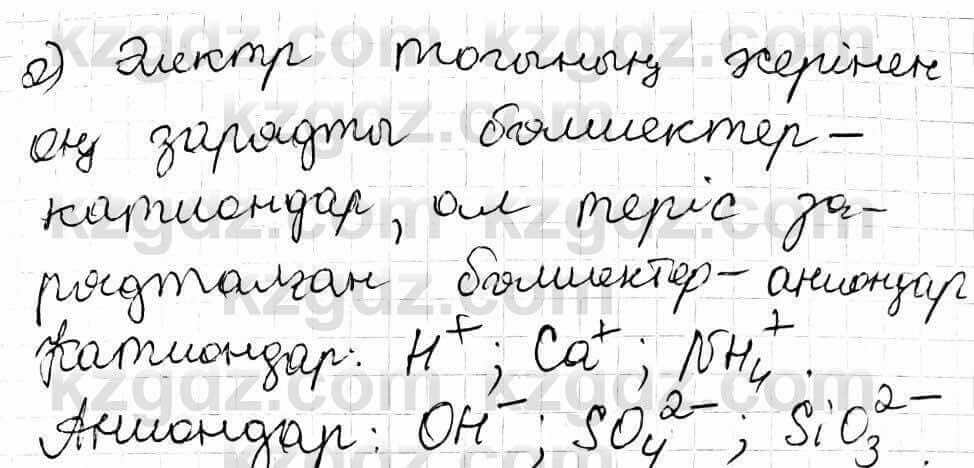 ә) Электр тогының жерінен
оң зарядты бөлшектер –
катиондар, ал теріс за-
рядталған бөлшектер – аниондар
Катиондар: H⁺; Ca⁺; NH₄⁺.
Аниондар: OH⁻; SO₄²⁻; SiO₃²⁻.